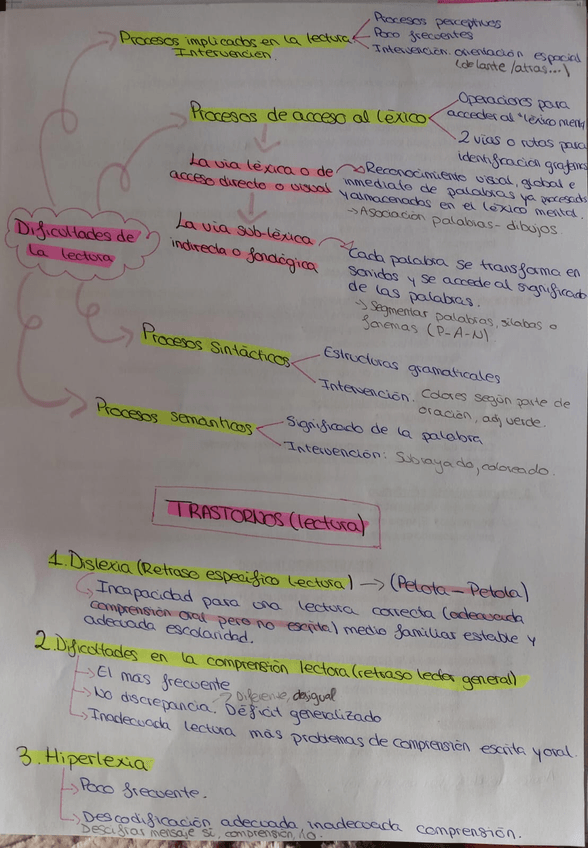 Procesos implicados en la lectura
Intervencien.
Procesos perceptivos
Poco frecuentes
Intervención. orientación espacial
(delante/atras...)
Procesos de acceso al léxico
Operaciones para
acceder al "léxico
2 vías o rutas para
identificación
La vía léxica o de
acceso directo o visual
Reconocimiento visual, global e
inmediato de palabras ya procesadas
y almacenadas en el léxico mental.
→ Asociación palabras - dibujos.
La vía sub-léxica
indirecta o fonológica
Cada palabra se transforma en
sonidos y se accede al significado
de las palabras.
→ Segmentar palabras, sílabas o
fonemas (P-A-N)
Dificultades de
la lectura
Procesos Sintácticos
Estructuras gramaticales
Intervención. Colores según parte de
oración, adj verde.
Procesos semánticos
Significado de la palabra
Intervención: Subrayado, coloreado.
TRASTORNOS (lectura)
1. Dislexia (Retraso específico Lectura) → (Pelota - Petola)
Incapacidad para una lectura correcta (adecuada
comprensión oral pero no escrita) medio familiar estable y
adecuada escolaridad.
2. Dificultades en la comprensión lectora (retraso lector general)
→ El más frecuente
→ No discrepancia. → Diferente, desigual
Déficit generalizado
→ Inadecuada lectura más problemas de comprensión escrita y oral.
3. Hiperlexia
→ Poco frecuente.
→ Descodificación adecuada inadecuada comprensión.
Descifras mensaje sí, comprensión, no.